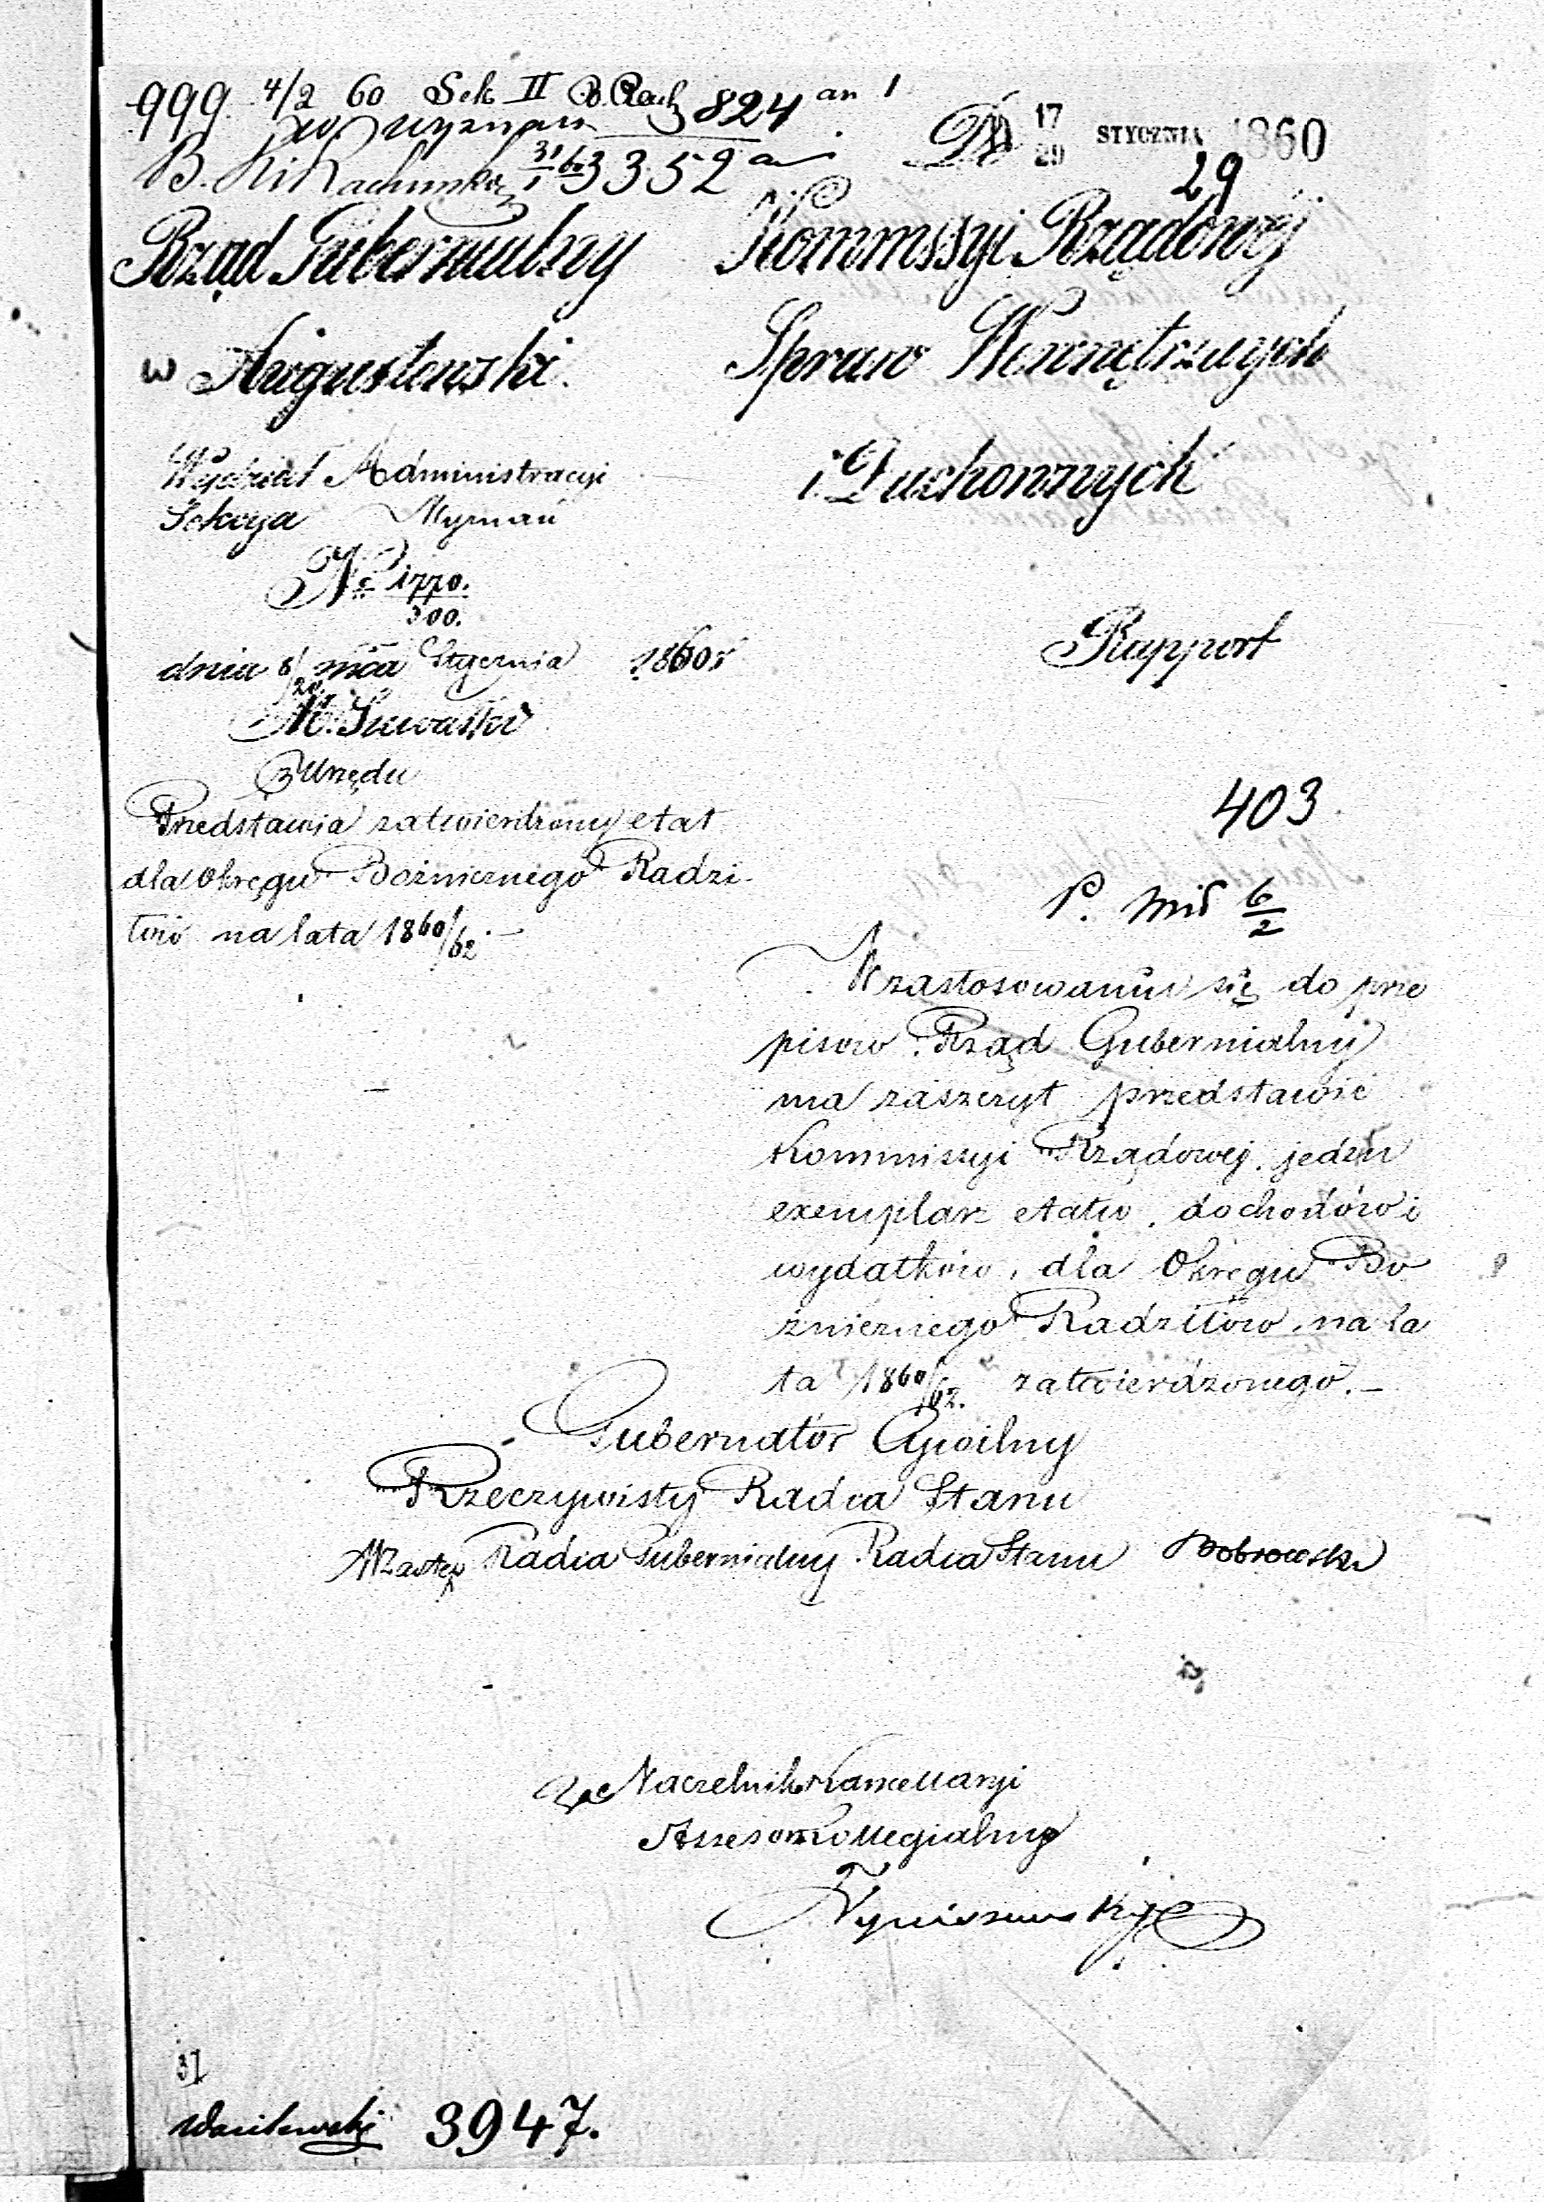 999. 4/2 60 Sek II B. Rach 824 an 1
do wyznań
B. Ki Rachunkow 31/1 60 3352
D 17/29 STYCZNIA 1860
29
Rząd Gubernialny
w Augustowski.
Wydział Administracyi
Sekcya Wyznań
N° 1770.
300.
dnia 8/20 mca Stycznia 1860 r
M. Suwałki
Z Urzędu
Przedstawia zatwierdzony etat
dla Okręgu Bożnicznego Radzi-
łów na lata 1860/62. –
Kommssyi Rządowéj
Spraw Wewnętrznych
i Duchownych
Rapport
403
P.
6/2
W zastosowaniu się do prze
pisow Rząd Gubernialny
ma zaszczyt przedstawić
Kommissyi Rządowej jeden
exemplarz etatu dochodów i
wydatków, dla Okręgu Bo
żnicznego Radziłów na la
ta 1860/62. zatwierdzonego. –
Gubernator Cywilny
Rzeczywisty Radca Stanu
W Zastęp Radca Gubernialny Radca Stanu Dobrowolski
Za Naczelnik Kancellaryi
Assesor Kollegialny
37
Wasilewski 3947.